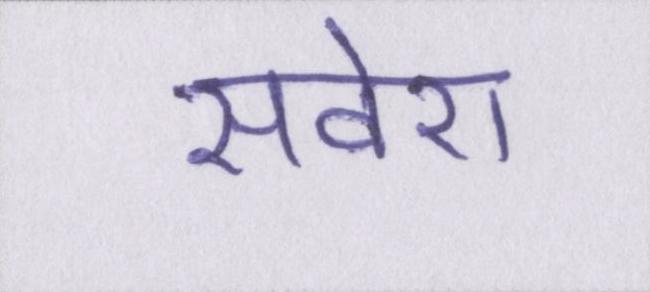 सवेरा